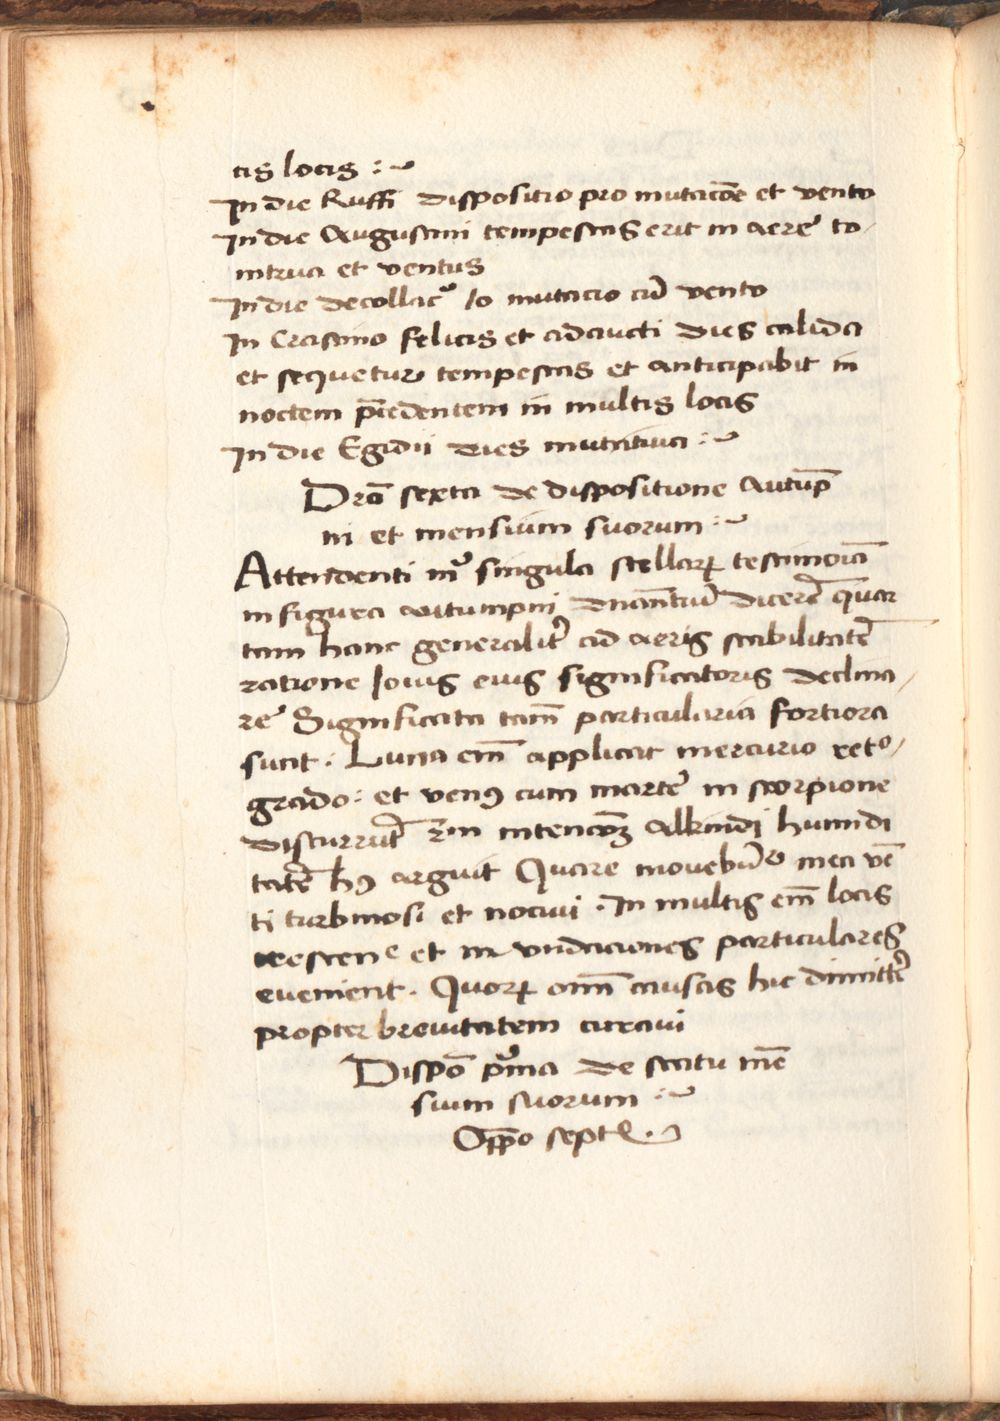 tis locis :~
In die Ruffi dispositio pro mutacōe et vento
In die Augustini tempestas erit in aere to-
nitrua et ventus
In die decollac̉ Io mutacio cū vento
In Crastino felicis et adaucti dies calida
et sequetur tempestas et anticipabit in
noctem p̄cedentem in multis locis
In die Egidii dies mutatiua :~
Dr̄a sexta de dispositione Autūp
ni et mensium suorum :~
Attendenti m̉ singula stellaꝝ testimoīa
in figura autumpni dicere quar
tam hanc generalit̉ ad aeris stabilitatē
ratione Iouis eius significatoris declina
re Significata tam̄ particularia fortiora
sunt . Luna em̄ applicat mercurio reto-
grado : et venꝰ cum marte in scorpione
discurrūt intencōꝫ Alkindi humidi
tatē hꝰ arguit Quare mouebūt̉ mea vē
ti turbinosi et nociui . In multis em̄ locis
et in vndaciones particulares
euenient . Quoꝝ om̄ causas hic dimittẻ
propter breuitatem curaui
Dispō p̉ma de statu mē
sium suorum :~
Opp̄o septꝭ .